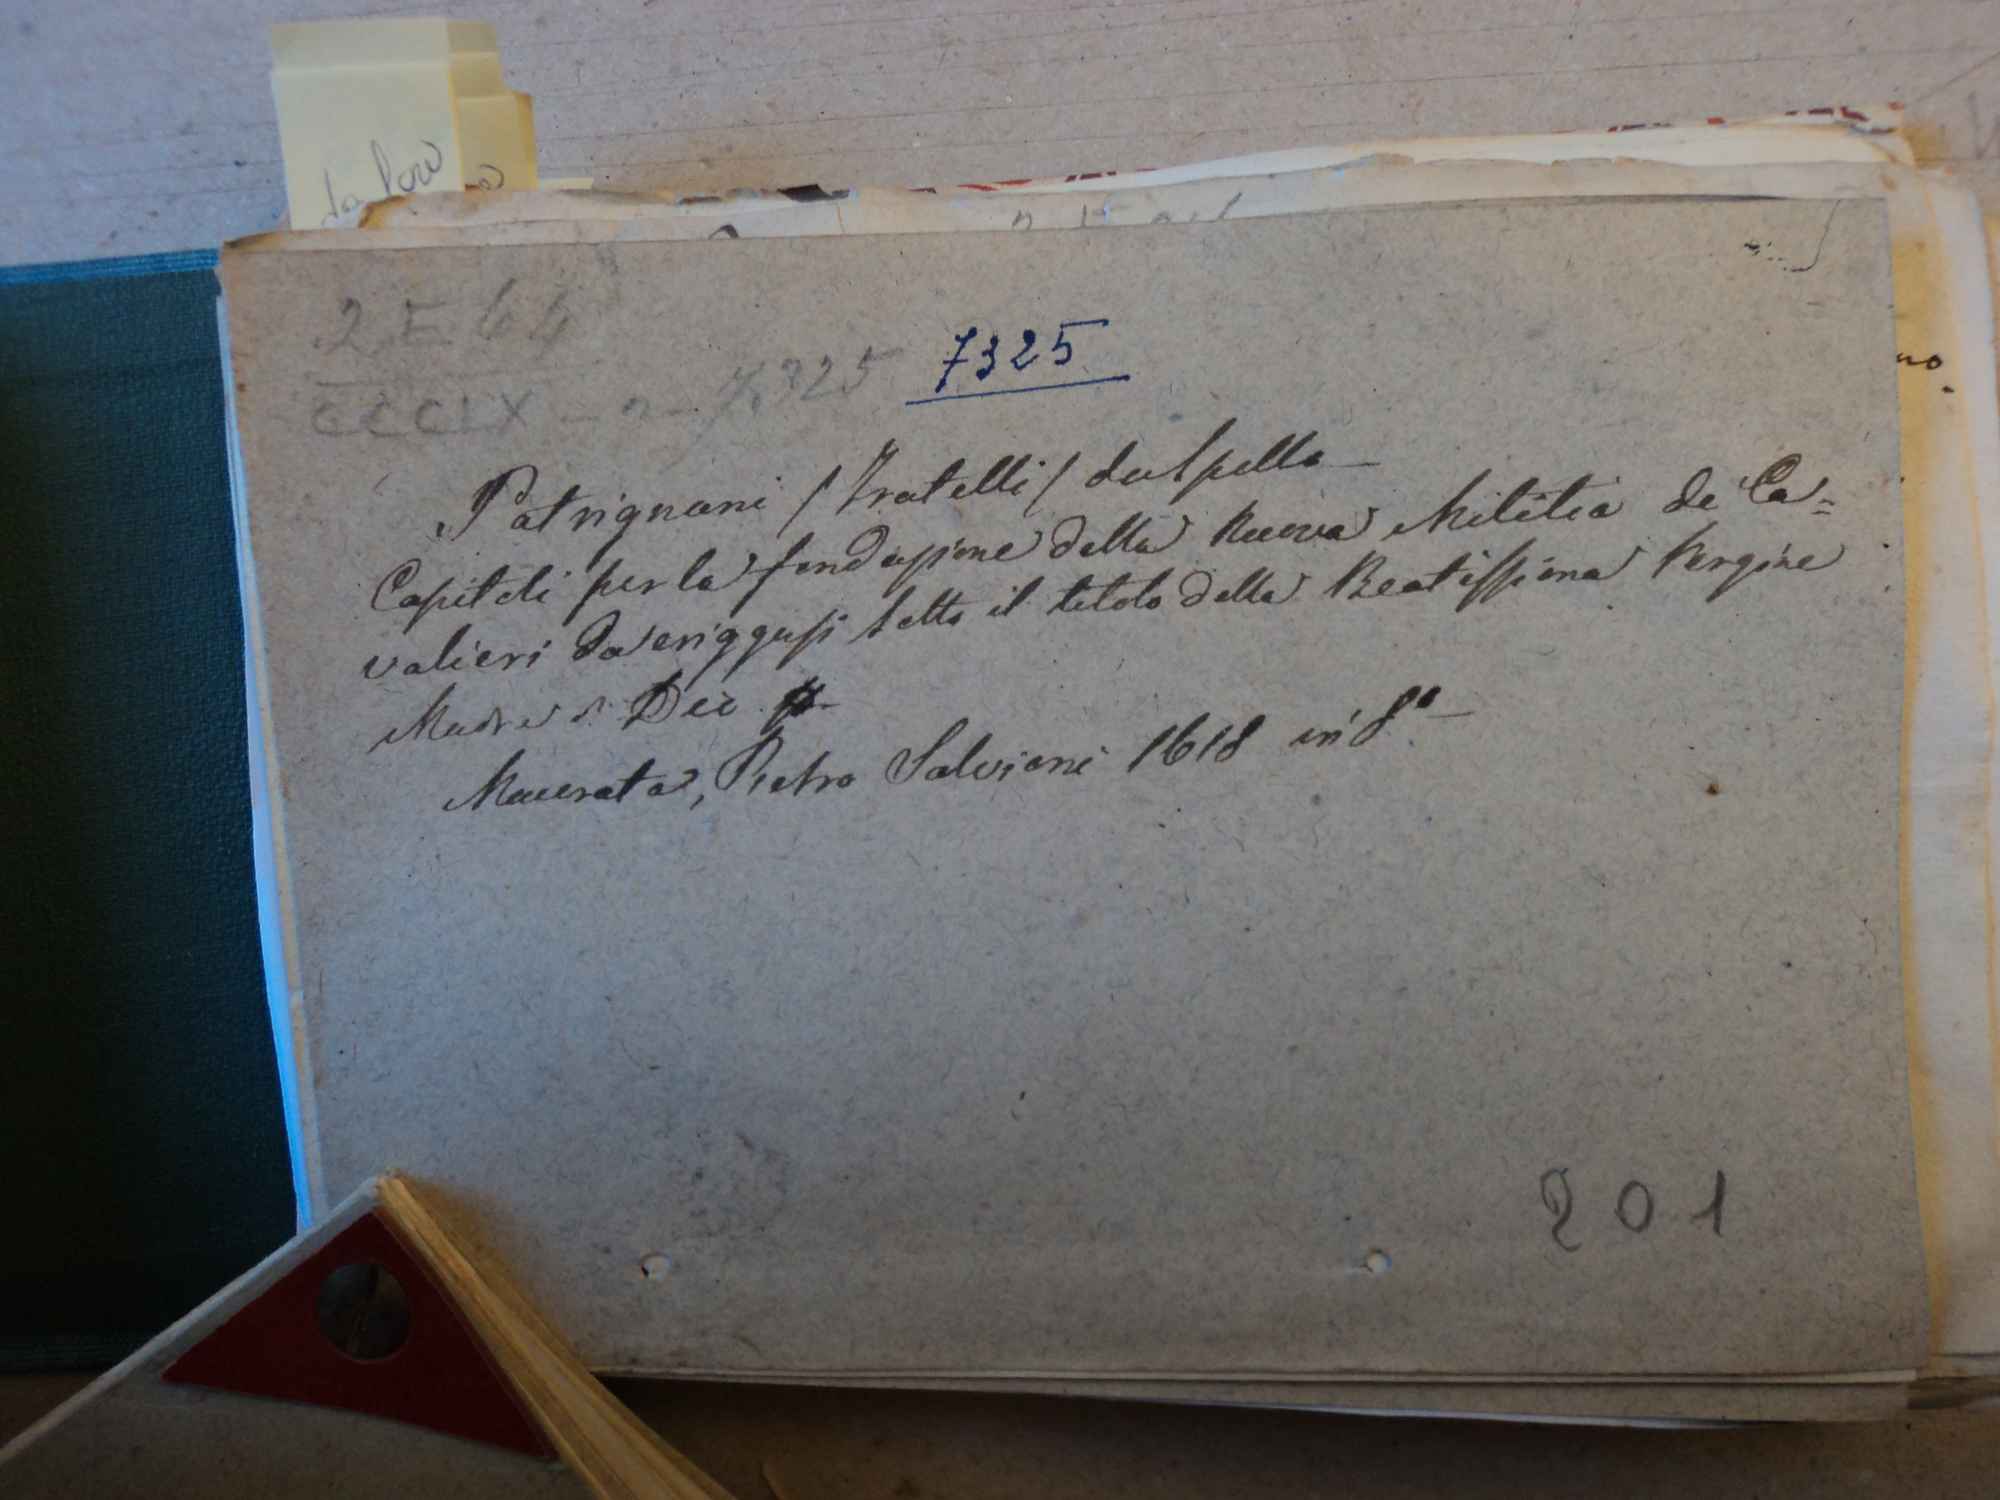 2 E 44
CCCLX - n - 7325 7325
Patrignani (Fratelli) da Spello
Capitoli per la fondazione della Nuova Militia de' Ca=
valieri da eriggersi sotto il titolo della Beatissima Vergine
Madre di Dio
Macerata, Pietro Salvioni 1618 in 8°
201